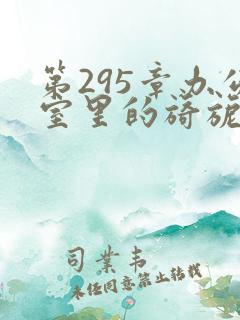 第295章办公
室里的旖旎
司业韦
未经同意禁止转载